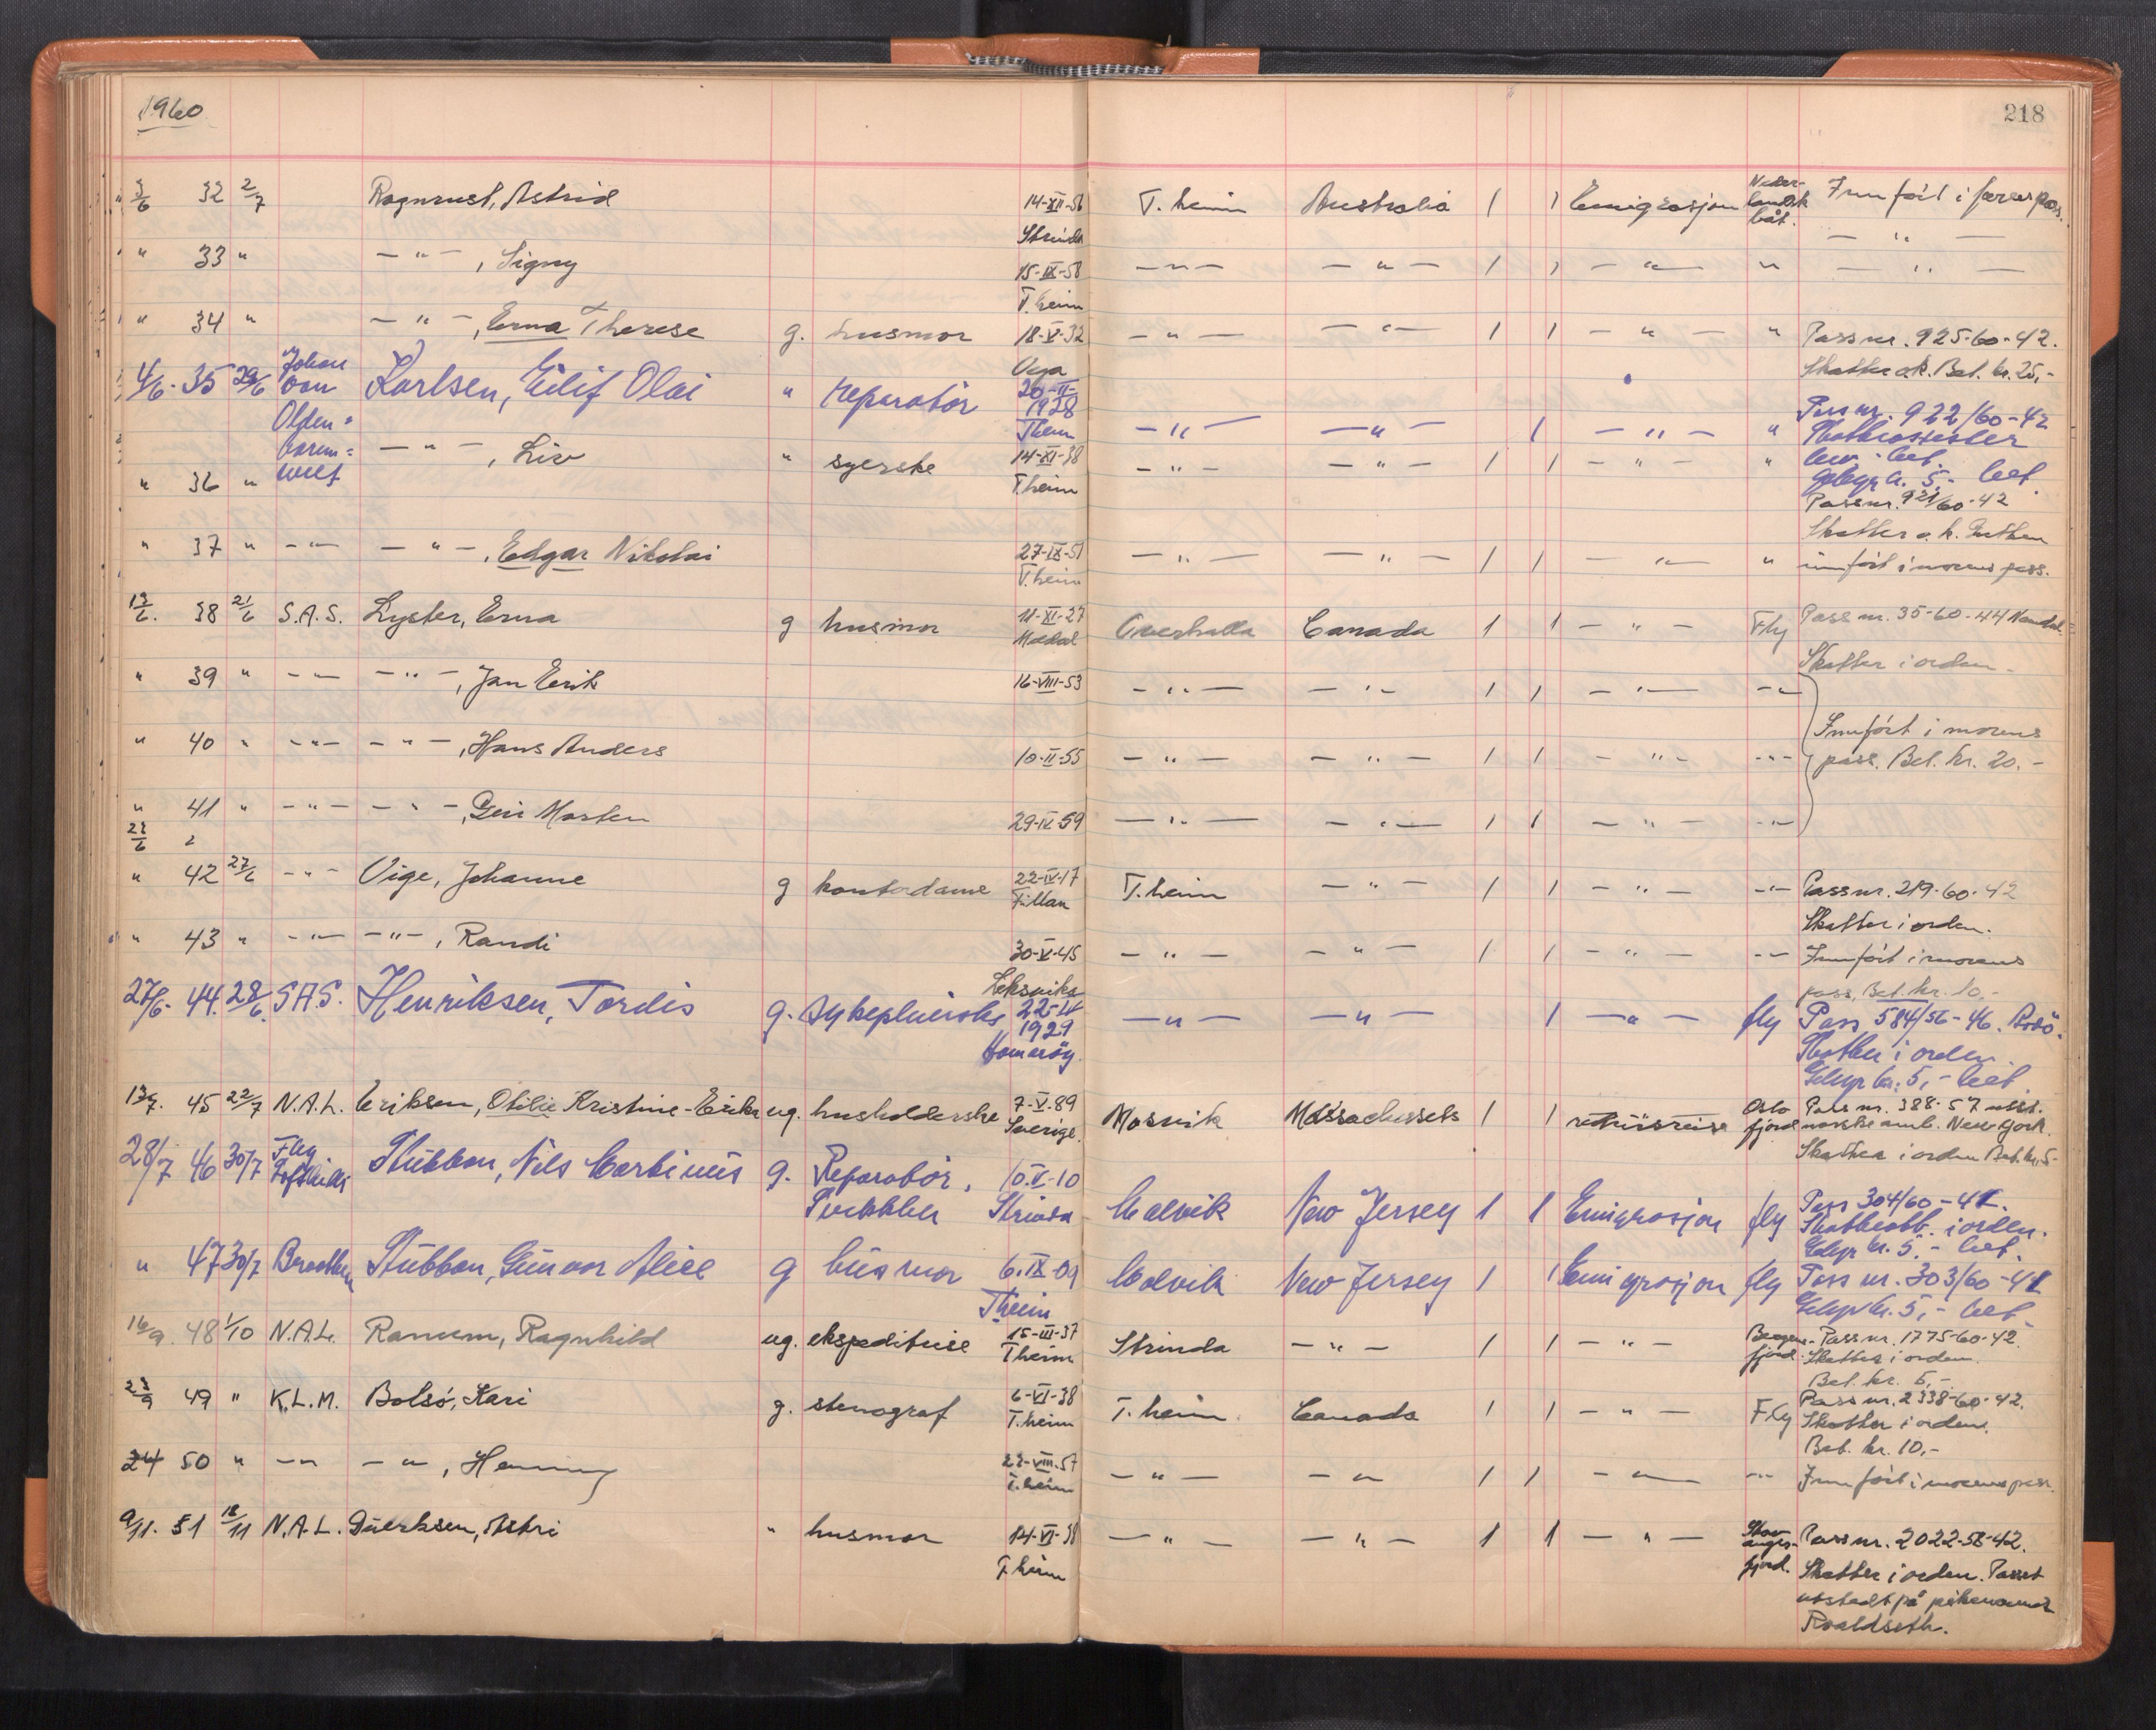 1960
218
3/6 32 2/7 Ragnrust, Astrid 14-XII-56 T.heim Australia 1 1 Emigrasjon Neder-landsk båt. Innført i farens pass.
Strinda — " —
" 33 " — " —, Signy 15-IX-58 — " — — " — 1 1 — " — " — " —
T.heim
" 34 " — " —, Erna Therese g. husmor 18-V-32 — " — — " — 1 1 — " — " Pass nr. 925-60-42.
Vega Skatter o.k. Bet. kr. 25,-
4/6. 35 29/6 Johan van Olden-barne-velt Karlsen, Eilif Olai " reparatör 20-II-1928 T.heim — " — — " — 1 — " — " Pass nr. 922/60-42
bet.
Gebyr kr. 5,- bet.
" 36 " — " —, Liv " syerske 14-XI-38 T.heim — " — — " — 1 1 — " — " Pass nr. 921/60-42
Skatter o.k. Gutten
" 37 " — " — — " —, Edgar Nikolai 27-IX-51 T.heim — " — — " — 1 1 — " — " innført i morens pass.
13/6. 38 21/6 S.A.S. Lyster, Erna g husmor 11-XI-27 Overhalla Canada 1 1 — " — Fly Pass nr. 35-60-44
Skatter i orden.
" 39 " — " — — " —, Jan Erik 16-VIII-53 — " — — " — 1 1 — " — — " —
" 40 " — " — — " —, Hans Anders 10-II-55 — " — — " — 1 1 — " — — " — Innført i morens
pass. Bet. kr. 20.-
" 41 " — " — — " —, Geir Morten 29-IV-59 — " — — " — 1 1 — " — — " —
" 42 27/6 — " — Vige, Johanne g kontordame 22-IV-17 Fillan T.heim — " — 1 1 — " — — " — Pass nr. 219-60-42
Skatter i orden.
" 43 " — " — — " —, Randi 30-V-45 — " — — " — 1 1 — " — — " — Innført i morens
Leksvika pass, Bet. kr. 10,-
27/6. 44. 28/6. SAS. Henriksen, Tordis g. sykepleierske 1929 Hamarøy. — " — — " — 1 — " — fly Pass 584/56-46.
Skatter i orden.
Gebyr kr. 5,- bet.
13/7. 45 22/7 N.A.L. Eriksen, Otilie Kristine-Erika ug. husholderske 7-V-89 Sverige. Mosvik Massachussets 1 1 retúrreise Oslo fjord Pass nr. 388-57 utst.
norske amb. New York.
Skatter i orden Bet. kr. 5-
28/7 46 30/7 Fly Stúbban, Nils Carbinius g. Reparatör, 10.V.10 Strinda Malvik New Jersey 1 1 Emigrasjon fly Pass 304/60-41.
i orden.
Gebyr kr. 5,- bet.
" 47 30/7 Braathen Stúbban, Gúnvor Alice g húsmor 6.IX-09 T.heim Malvik New Jersey 1 1 Emigrasjon fly Pass nr. 303/60-41
Gebyr kr. 5,- bet.
16/9. 48 1/10 N.A.L. Ranum, Ragnhild ug. ekspeditrise 15-III-37 T.heim Strinda — " — 1 1 — " — Bergens-fjord. Pass nr. 1775-60-42.
Skatter i orden.
Bet. kr. 5,-
23/9 49 " K.L.M. Bolsö, Kari g. stenograf 6-VI-38 T.heim T.heim Canada 1 1 — " — Fly Pass nr. 2338-60-42.
Skatter i orden.
Bet. kr. 10,-
24 50 " — " — — " —, Henning 22-VIII-57 T.heim — " — — " — 1 1 — " — — " — Innført i morens pass.
9/11. 51 18/11 N.A.L. Astri " husmor 14-VI-38 T.heim — " — — " — 1 1 — " — Stav-anger-fjord. Pass nr. 2022-58-42.
Skatter i orden. Passet
utstedt på pikenavnet
Roaldseth.